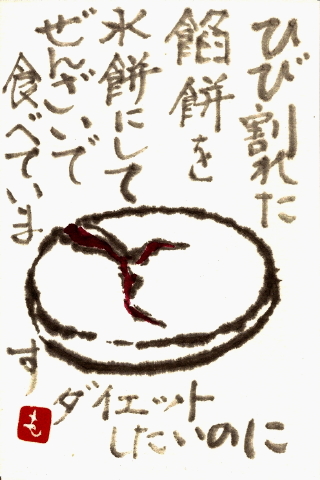 ひび割れた
餡餅を
氷餅にして
ぜんざいで
食べています
ダイエット
したいのに
も